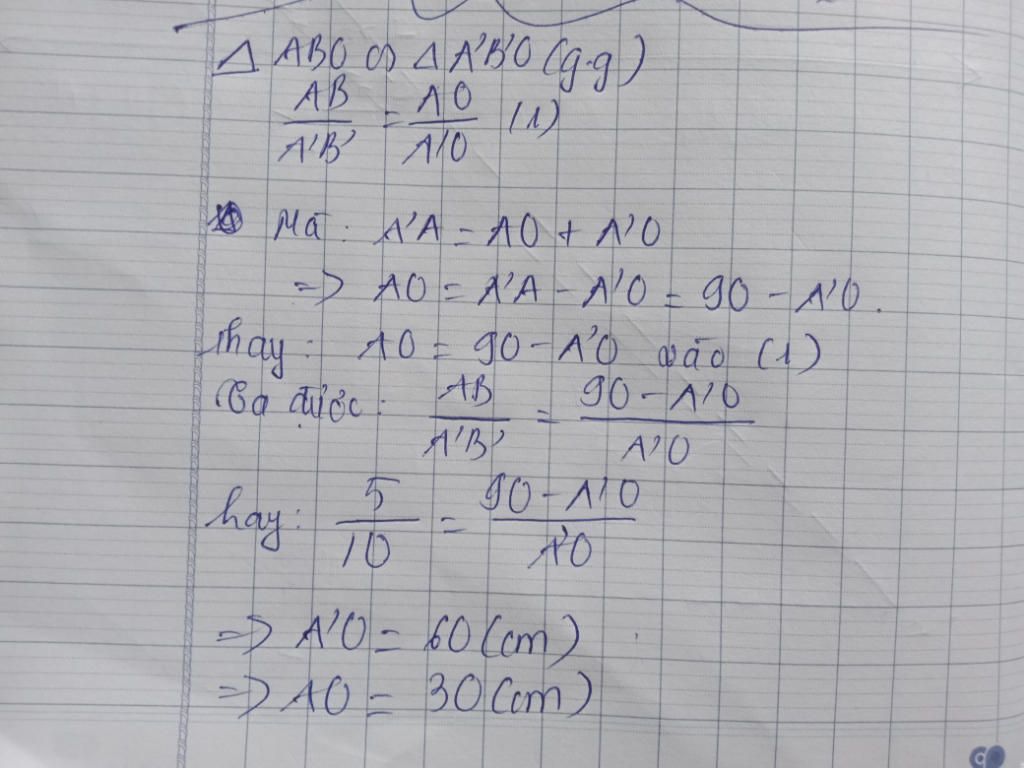 Δ ABO ∽ Δ A'B'O (g.g)
AB/A'B' = AO/A'O (1)
Mà: A'A = AO + A'O
=> AO = A'A - A'O = 90 - A'O.
Thay: AO = 90 - A'O vào (1)
Ta được: AB/A'B' = 90 - A'O/A'O
hay: 5/10 = 90 - A'O/A'O
=> A'O = 60 (cm)
=> AO = 30 (cm)